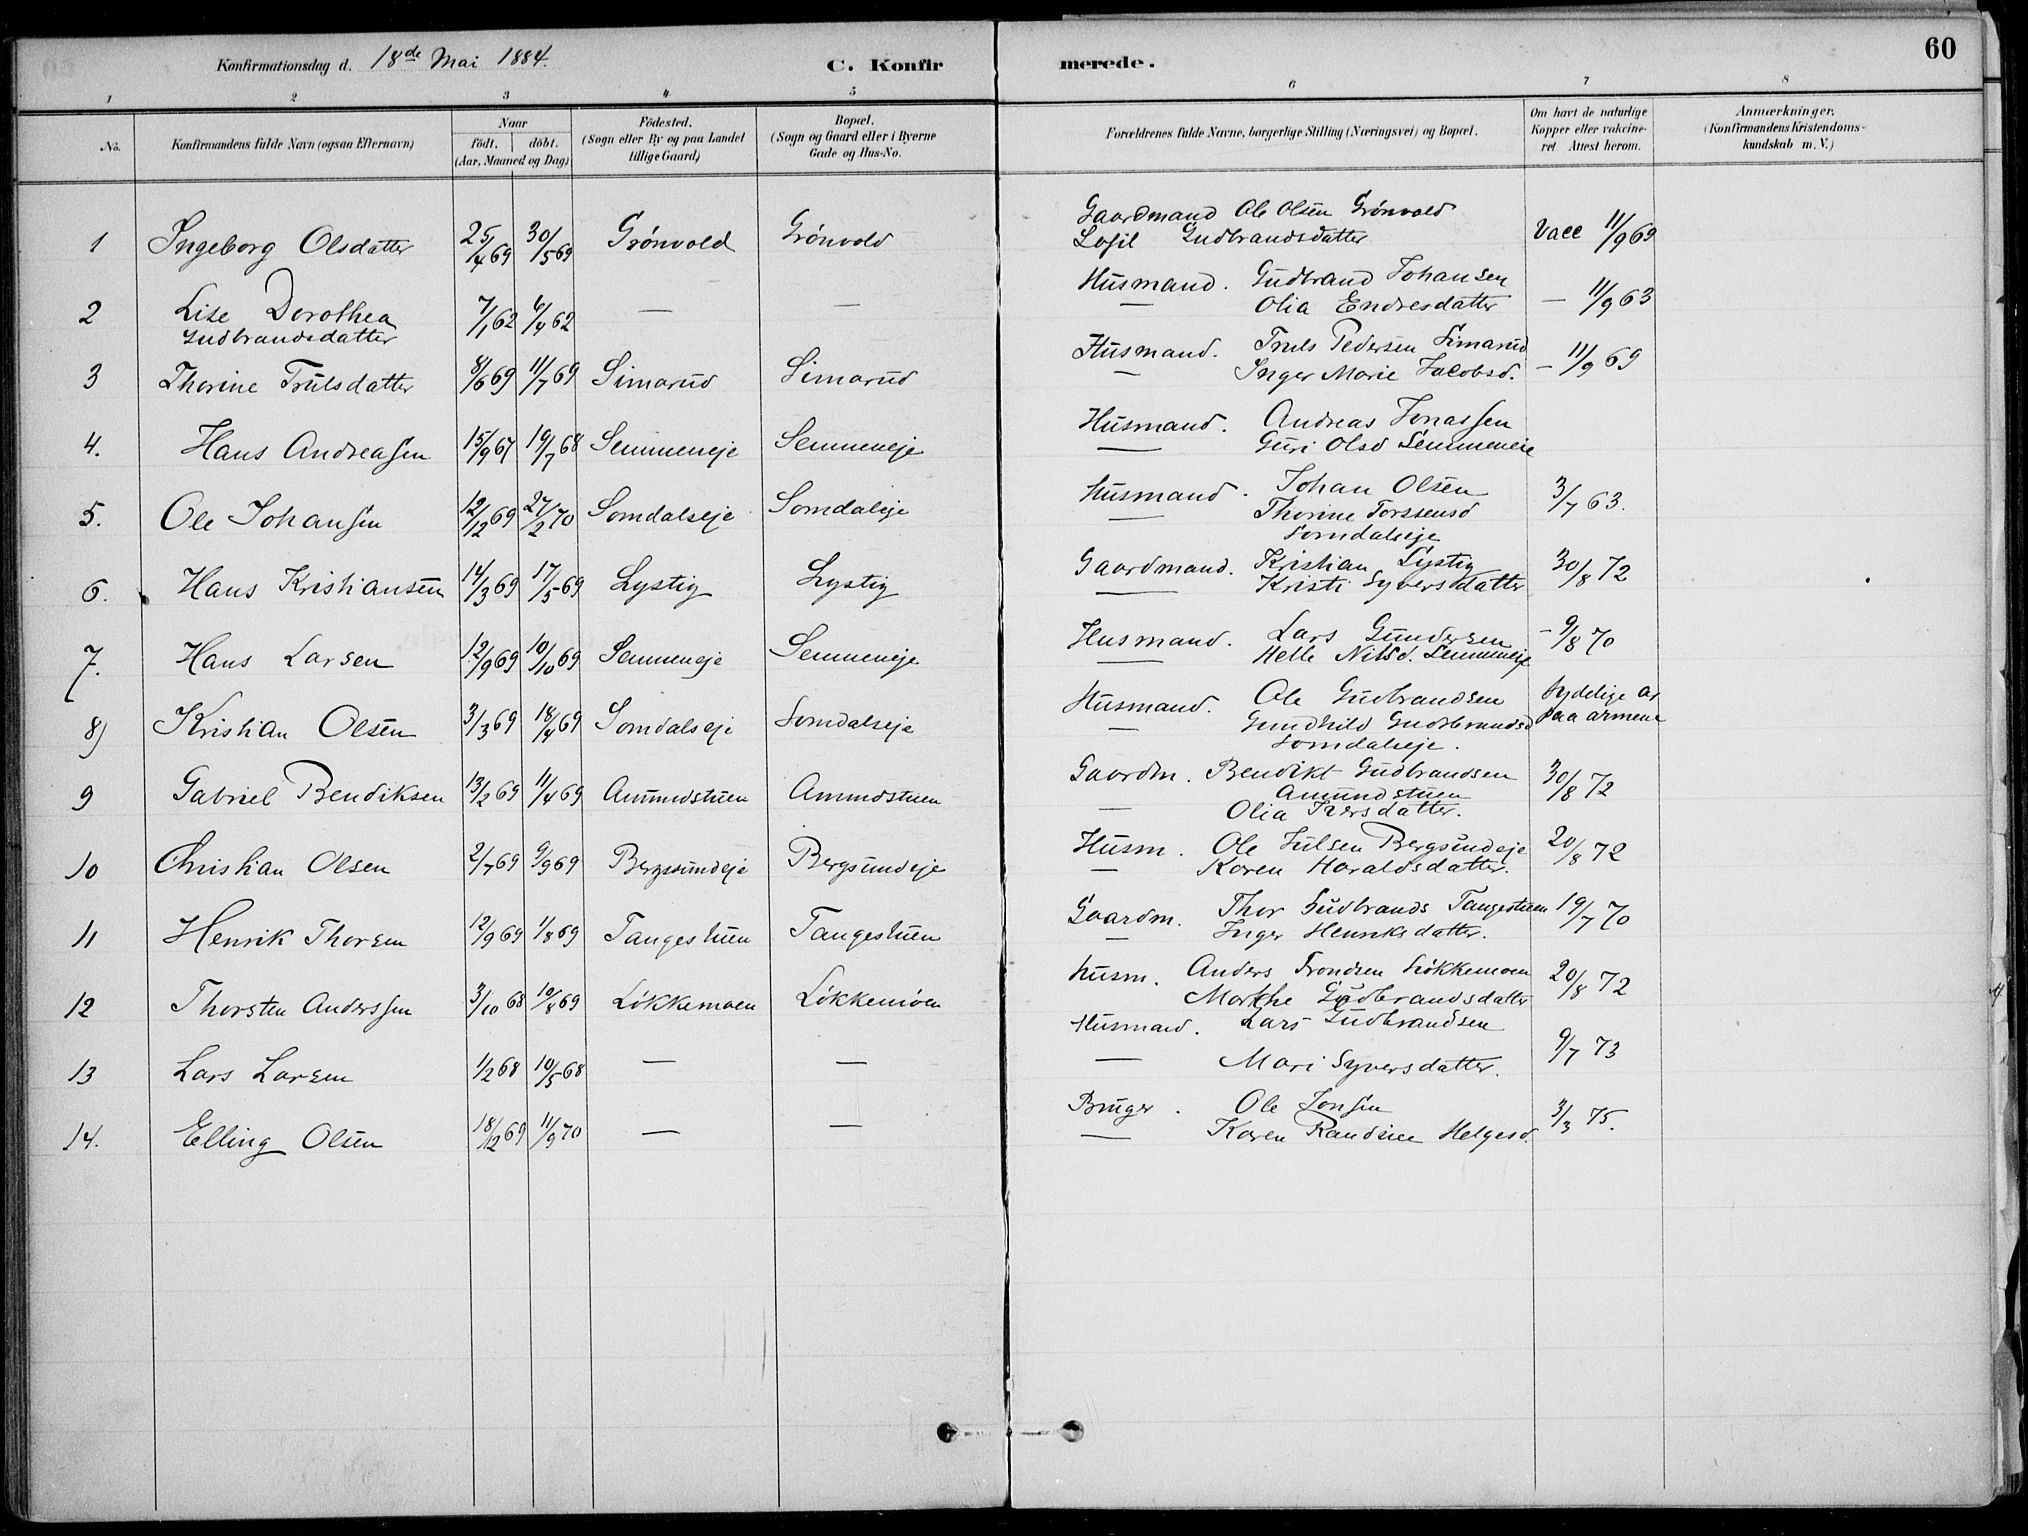 60
Konfirmationsdag d. 18de Mai 1884. C. Konfirmerede.
1 2 3 4 5 6 7 8
No. Konfirmandens fulde Navn (ogsaa Efternavn) Naar födt. döbt. (Aar, Maaned og Dag) Födested. (Sogn eller By og paa Landet tillige Gaard) Bopæl. (Sogn og Gaard eller i Byerne Gade og Hus-No. Forældrenes fulde Navne, borgerlige Stilling (Næringsvei) og Bopæl. Om havt de naturlige Kopper eller vakcineret. Attest herom. Anmærkninger. (Konfirmandens Kristendomskundskab m. V.)
1 Ingeborg Olsdatter 25/4 69 30/5 69 Grönvold Grönvold Gaardmand Ole Olsen Grönvold Vacc 11/9 69
Gudbrandsdatter
2 Lise Dorothea 7/1 62 6/4 62 — — Husmand. Gudbrand Johansen
Gudbrandsdatter — Olia Endresdatter — 11/9 63
3 Thorine Trulsdatter 8/6 69 11/7 69 Simarud Simarud Husmand. Truls Pedersen Simarud
— Inger Marie Jacobsd. — 11/9 69
4. Hans Andreassen 15/9 67 19/7 68 Semmeneje Semmeneje Husmand. Andreas Jonassen
— Guri Olsd Semmeneie
5. Ole Johansen 12/12 69 27/2 70 Somdalseje Somdaleje Husmand. Johan Olsen 3/7 63.
— Thorine Torssensd
Somdalseje
6. Hans Kristiansen 14/3 69 17/5 69 Lystig Lystig Gaardmand. Kristian Lystig 30/8 72
— Kristi Syversdatter
7. Hans Larsen 12/9 69 10/10 69 Semmeneje Semmeneje Husmand. Lars Gundersen — 9/8 70
— Helle Nilsd. Semmeneje
8) Kristian Olsen 3/3 69 18/4 69 Somdalseje Somdalseje Husmand. Ole Gudbrandsen tydelige ar
— Gundhild Gudbrandsd paa armene
Somdalseje.
9 Gabriel Bendiksen 13/2 69 11/4 69 Amundstuen Amundstuen Gaardm. Bendikt Gudbrandsen 30/8 72
Amundstuen
— Olia Iversdatter.
10 Christian Olsen 2/7 69 9/9 69 Bergsundeje Bergsundeje Husm. Ole Julsen Bergsundeje 20/8 72
— Karen Haraldsdatter.
11 Henrik Thorsen 12/9 69 1/8 69 Tangestuen Tangestuen Gaardm. Thor Gudbrands Tangestuen 19/7 70
— Inger Henriksdatter.
12 Thorsten Anderssen 3/10 68 10/8 69 Lökkemoen Lökkemoen Husm. Anders Trondsen Lökkemoen 20/8 72
Marthe Gudbrandsdatter
13 Lars Larsen 1/2 68 10/5 68 — — Husmand. Lars Gudbrandsen 9/7 73
— Mari Syversdatter.
14. Elling Olsen 18/12 69 11/9 70 — — Bruger. Ole Jonsen 3/3 75.
— Karen Randine Helgesd.